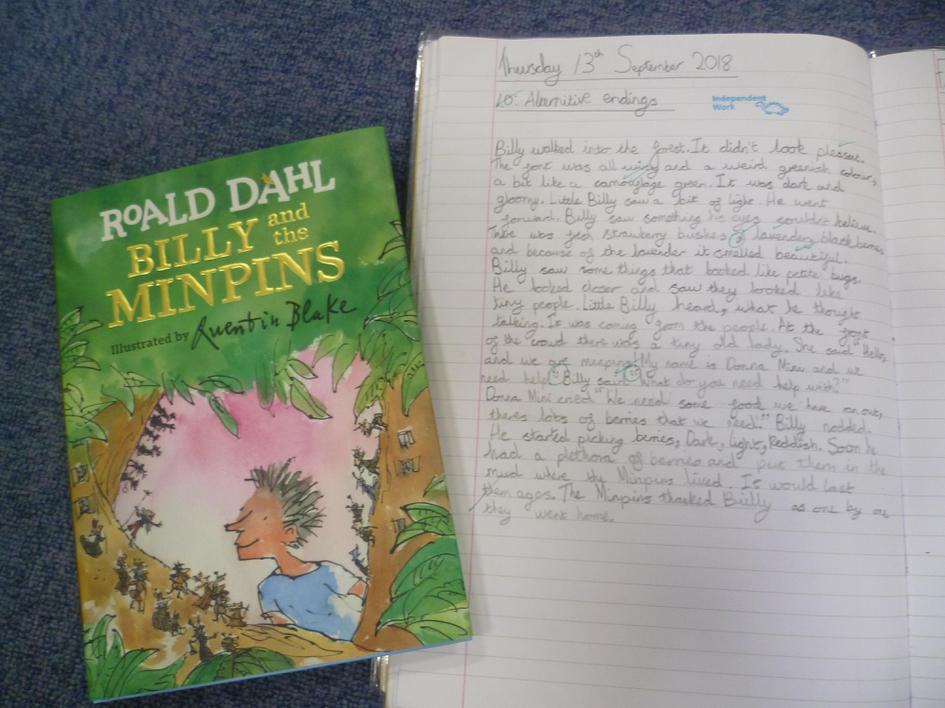 ROALD DAHL
BILLY and the
MINPINS
Illustrated by Quentin Blake
Thursday 13th September 2018
LO: Alternitive endings
Independent
Work
Billy walked into the forest. It didn't look pleasent.
The was all and a weird greenish colour,
a bit like a green. It was dark and
gloomy. Little Billy saw a bit of light. He went
forward. Billy saw something his eyes couldn't believe.
was strawberry bushes lavender, blackberries
and because of the lavender it smelled beautiful.
Billy saw some things that looked like petite bugs.
He looked closer and saw they looked like
tiny people. Little Billy heard, what he thought
talking. It was coming from the people. At the
of the crowd there was a tiny old lady. She said "Hello,
and we are minpins! My name is Donna Mini and we
need help!" Billy said "What do you need help with?"
Donna Mini cried "We need some we have ran out,
theres lots of berries that we need!" Billy nodded.
He started picking berries, Dark, light, Reddish. Soon he
had a plethora of berries and put them in the
where the Minpins lived. It would last
them ages. The Minpins thanked Billy as one by one
they went home.